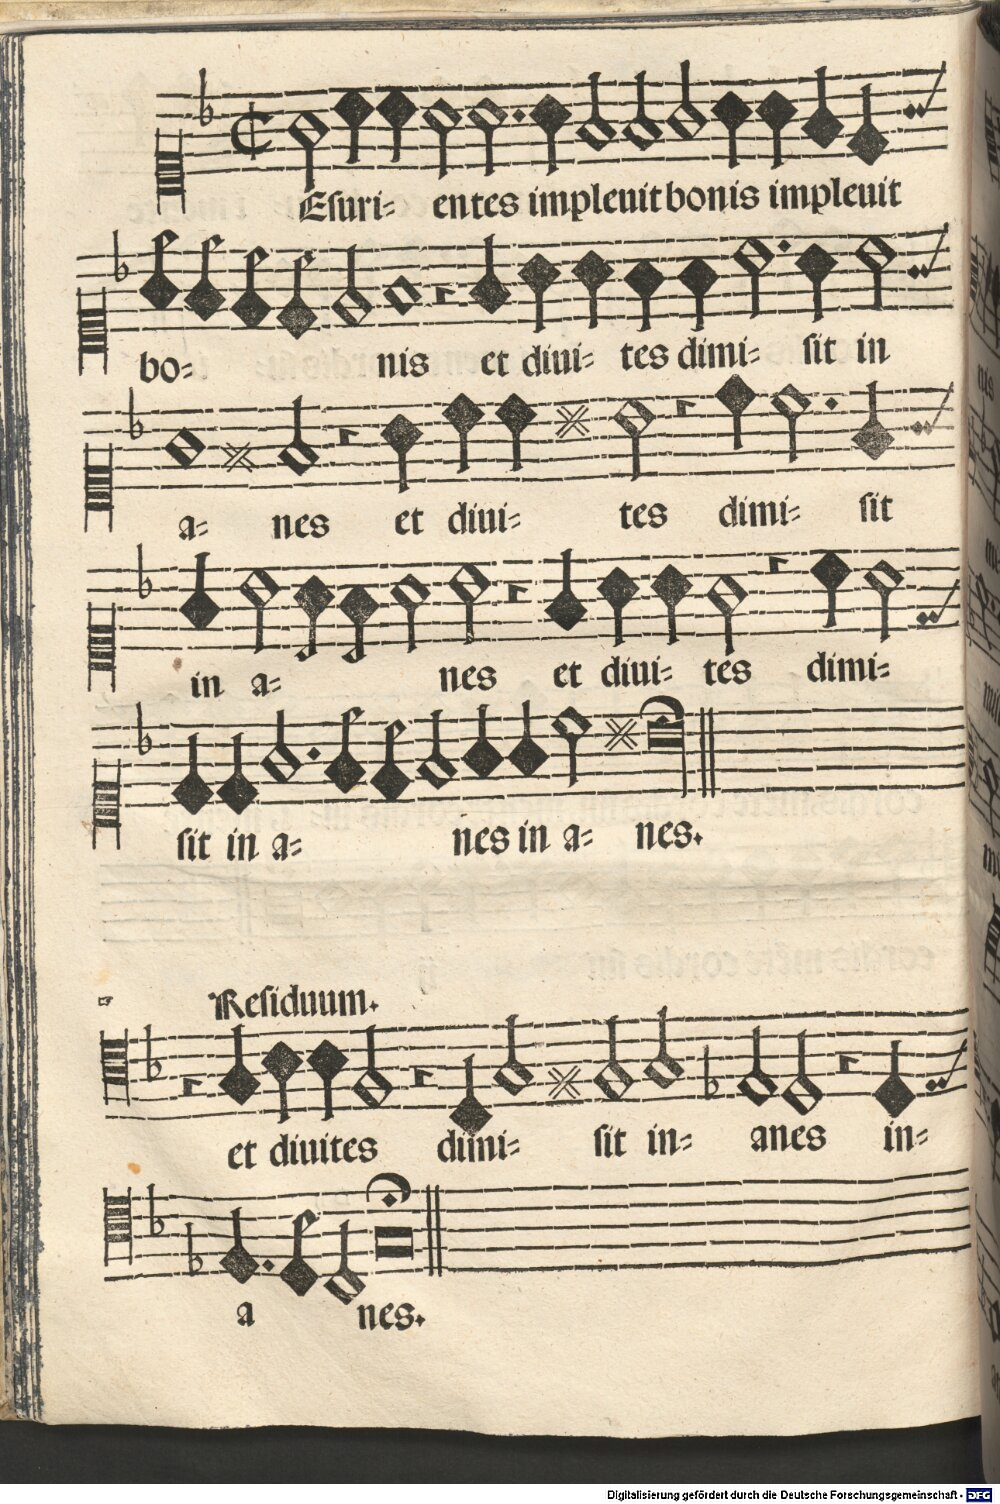 Eſuri= entes impleuit bonis impleuit
bo= nis et diui= tes dimi= ſit in
a= nes et diui= tes dimi= ſit
in a= nes et diui= tes dimi=
ſit in a= nes in a= nes.
Reſiduum.
et diuites dimi= ſit in= anes in=
a nes.
Digitalisierung gefördert durch die Deutsche Forschungsgemeinschaft - DFG